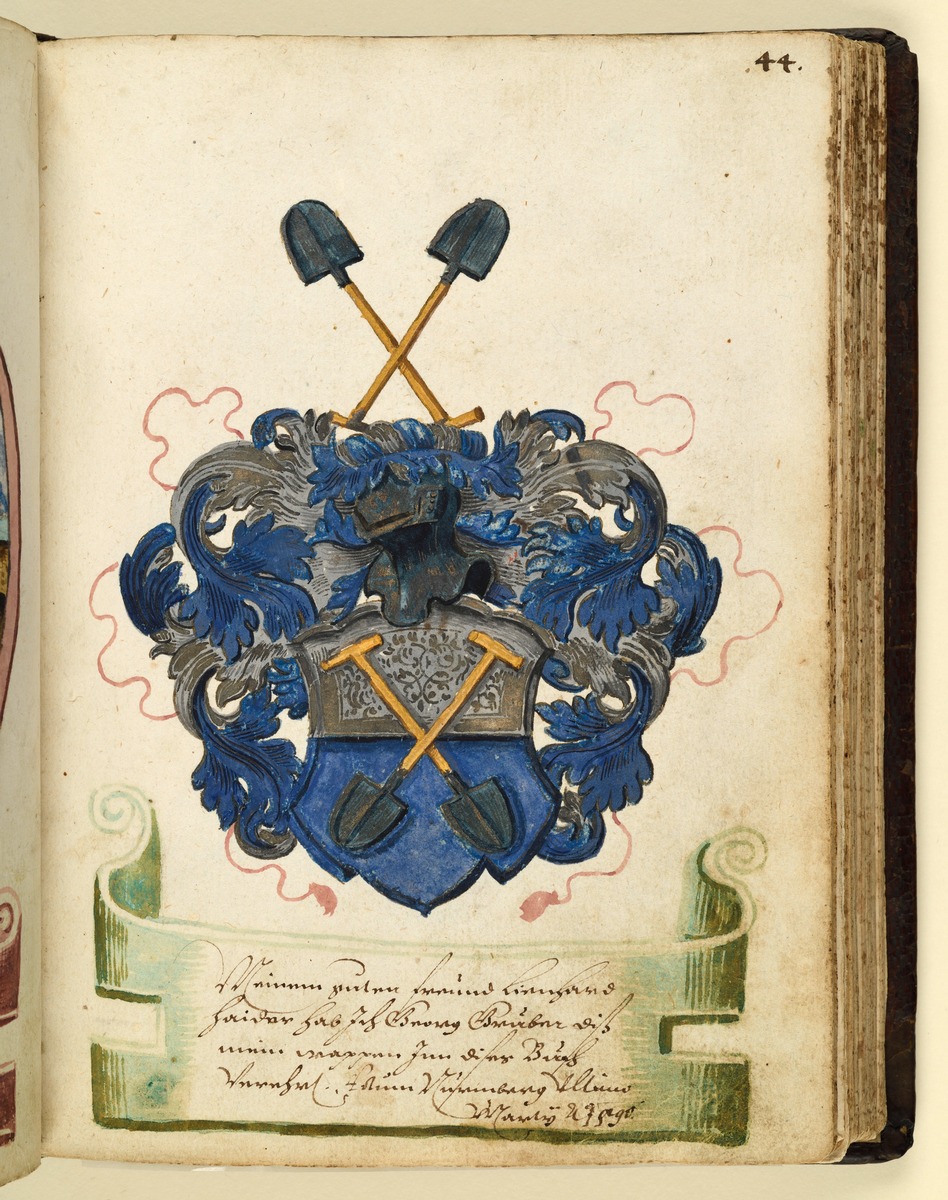 44.
Meinem guten freund Lienhard
haider hab Ich Georg Gruber diß
mein wappen Inn dises Buch
Verehrt. Actum Nürmberg Ultimo
Martÿ Aº 1590.